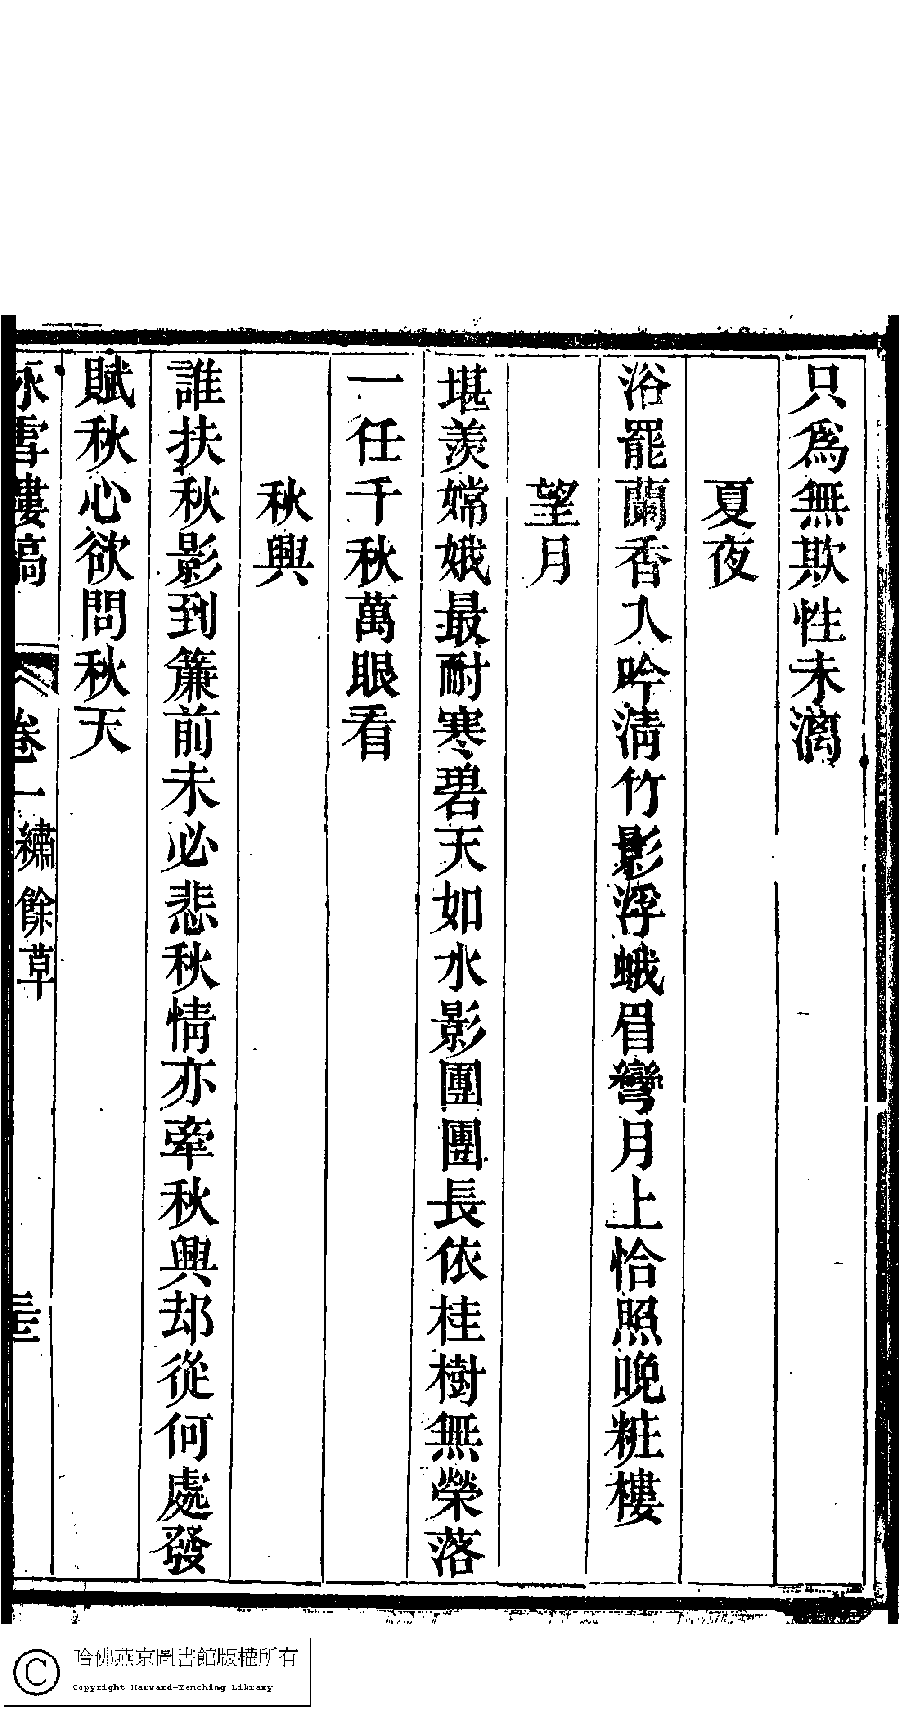 只爲無欺性未漓
夏夜
浴罷蘭香入吟淸竹影浮蛾眉彎月上恰照晚粧樓
望月
堪羨嫦娥最耐寒碧天如水影團團長依桂樹無榮落
一任千秋萬眼看
秋興
誰扶秋影到簾前未必悲秋情亦牽秋興却從何處發
賦秋心欲問秋天
詠雪樓稿 卷一 繡餘草
哈佛燕京圖書館版權所有
Copyright Harvard-Yenching Library